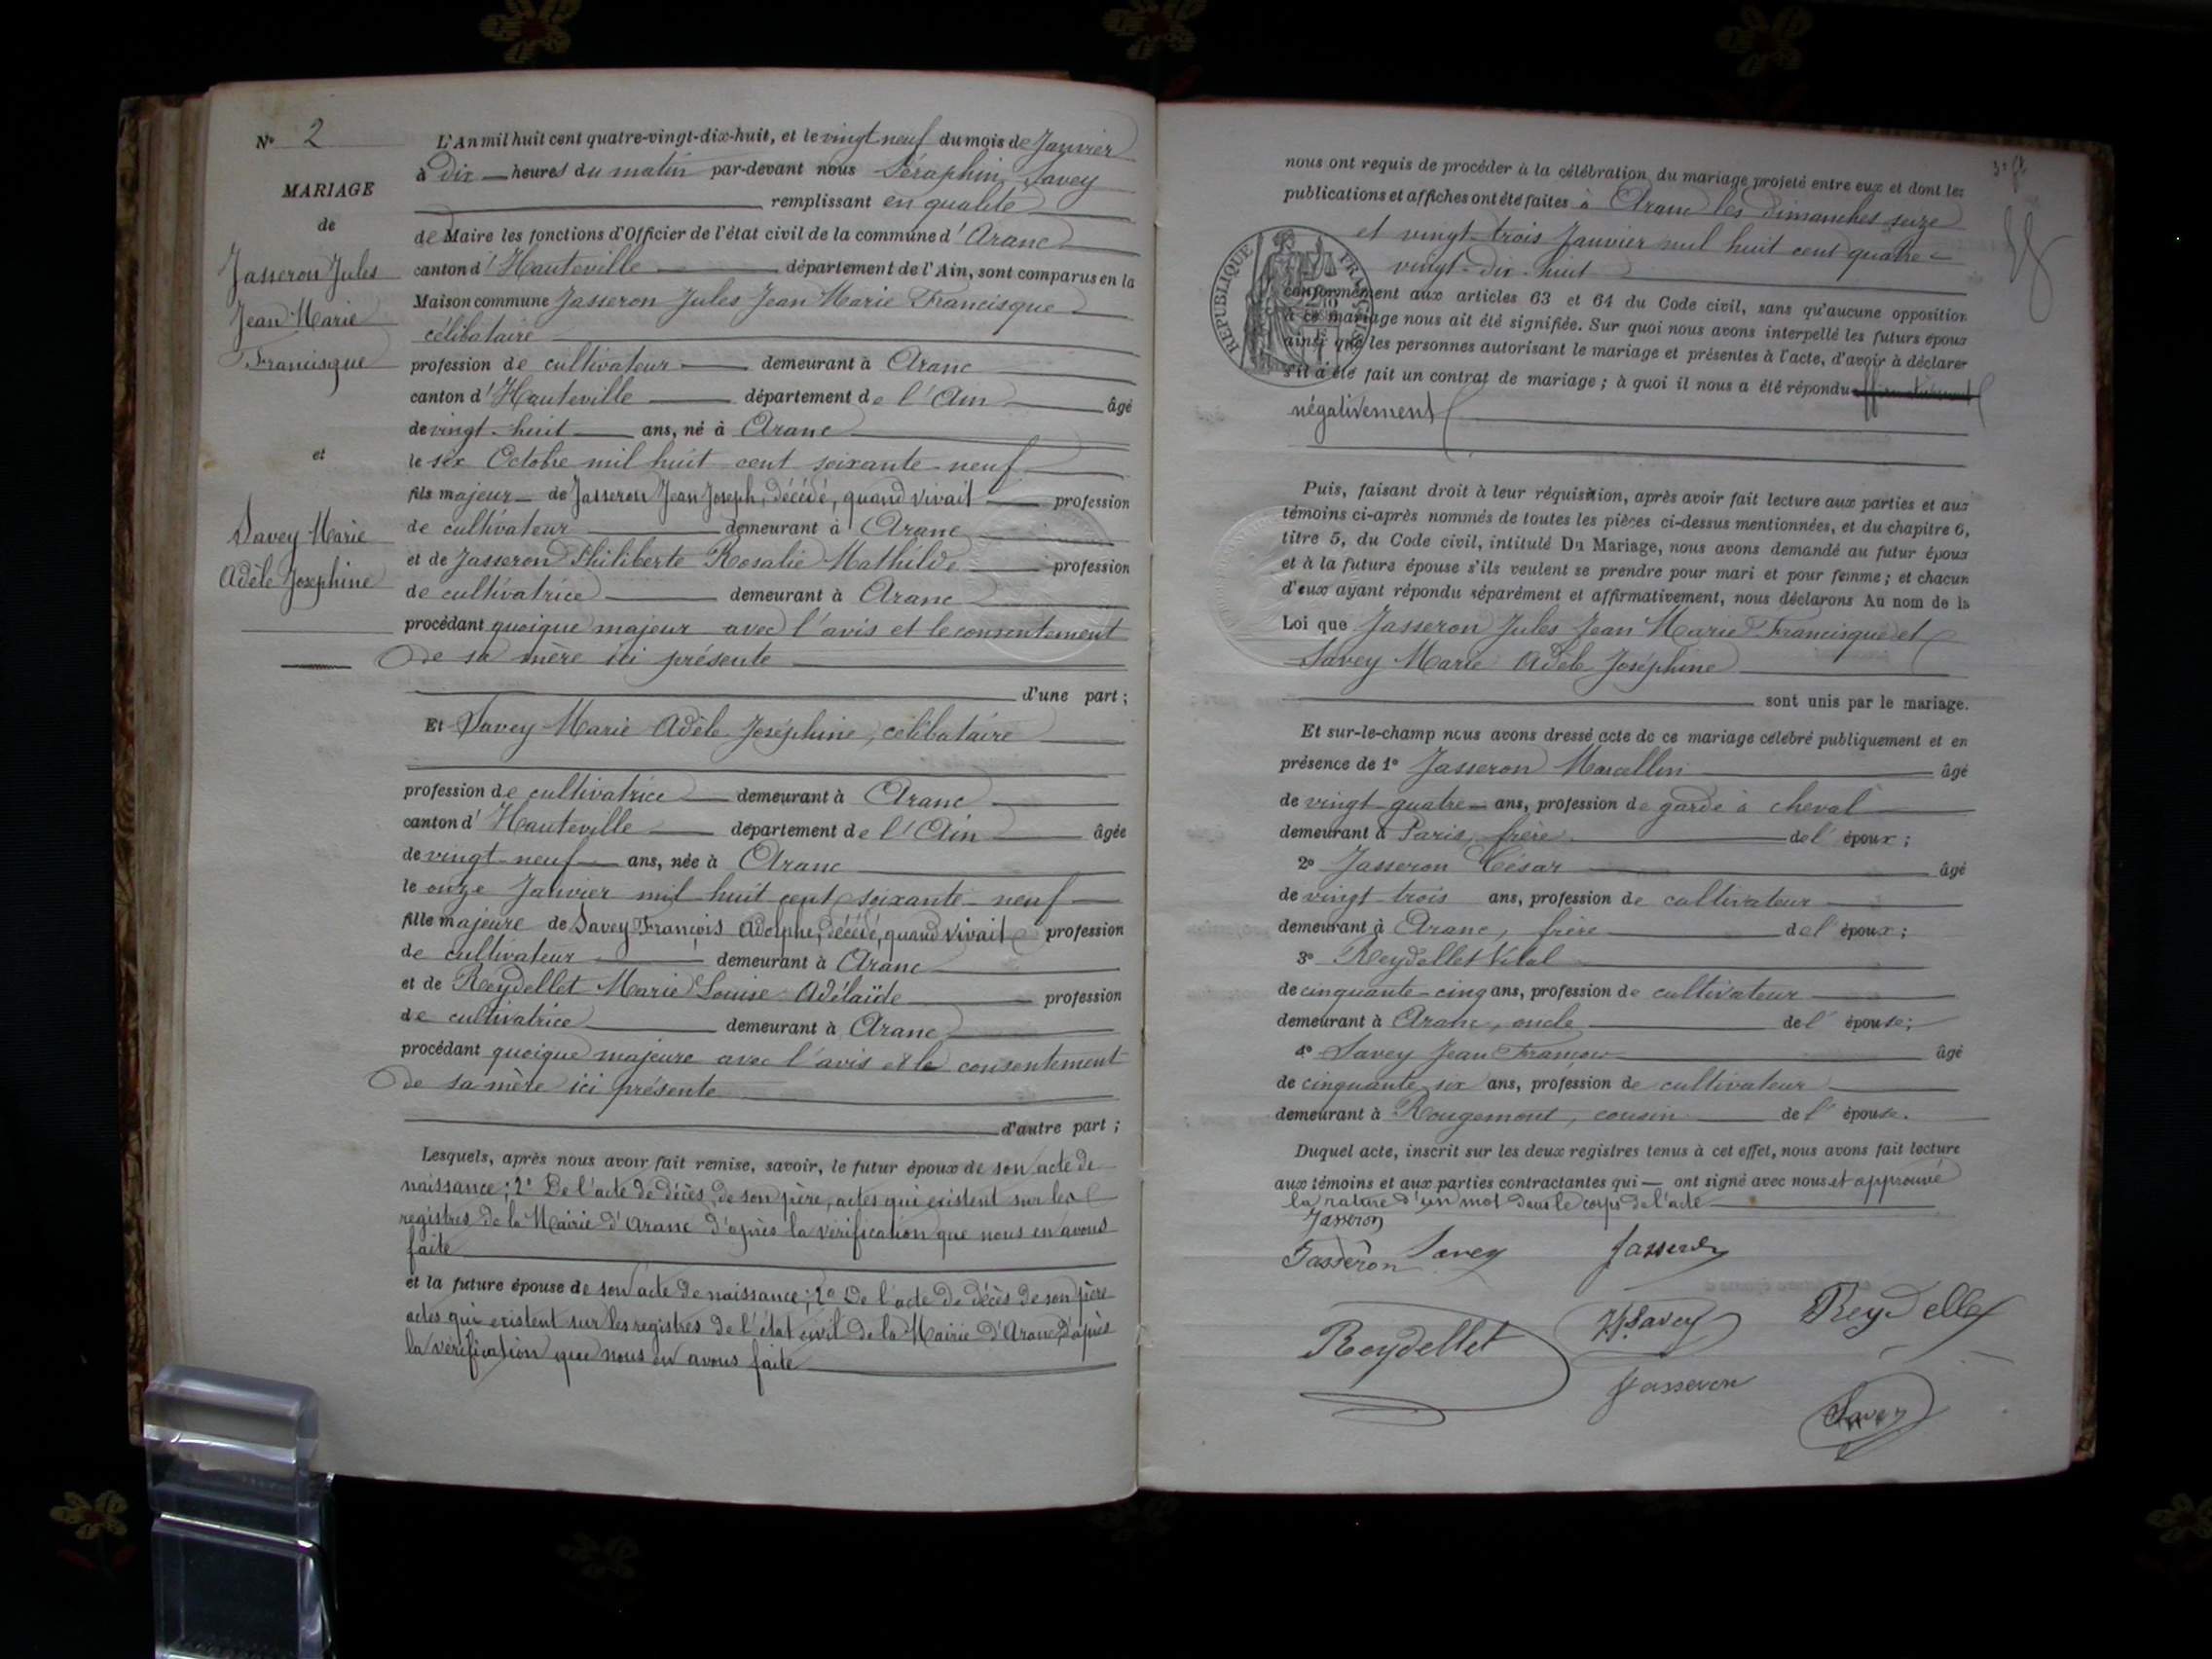 N° 2
MARIAGE
de
Jasseron Jules
Jean Marie
Francisque
et
Savey Marie
Adèle Joséphine
L'An mil huit cent quatre-vingt-dix-huit, et le vingt neuf du mois de Janvier
à dix heures du matin par-devant nous Séraphin Savey
remplissant en qualité
de Maire les fonctions d'Officier de l'état civil de la commune d'Aranc
canton d'Hauteville département de l'Ain, sont comparus en la
Maison commune Jasseron Jules Jean Marie Francisque
célibataire
profession de cultivateur demeurant à Aranc
canton d'Hauteville département de l'Ain âgé
de vingt-huit ans, né à Aranc
le six Octobre mil huit cent soixante-neuf
fils majeur de Jasseron Jean Joseph, décédé, quand vivait profession
de cultivateur demeurant à Aranc
et de Jasseron Philiberte Rosalie Mathilde profession
de cultivatrice demeurant à Aranc
procédant quoique majeur avec l'avis et le consentement
de sa mère ici présente
d'une part ;
Et Savey Marie Adèle Joséphine, célibataire
profession de cultivatrice demeurant à Aranc
canton d'Hauteville département de l'Ain âgée
de vingt-neuf ans, née à Aranc
le onze Janvier mil huit cent soixante-neuf
fille majeure de Savey François Adolphe, décédé, quand vivait profession
de cultivateur demeurant à Aranc
et de Reydellet Marie Louise Adélaïde profession
de cultivatrice demeurant à Aranc
procédant quoique majeure avec l'avis et le consentement
de sa mère ici présente
d'autre part ;
Lesquels, après nous avoir fait remise, savoir, le futur époux de son acte de
naissance ; 2° De l'acte de décès de son père, actes qui existent sur les
registres de la Mairie d'Aranc d'après la vérification que nous en avons
faite
et la future épouse de son acte de naissance ; 2° De l'acte de décès de son père
actes qui existent sur les registres de l'état civil de la Mairie d'Aranc, d'après
la vérification que nous en avons faite
nous ont requis de procéder à la célébration du mariage projeté entre eux et dont les
publications et affiches ont été faites à Aranc les dimanches seize
et vingt-trois Janvier mil huit cent quatre-
vingt-dix-huit
RÉPUBLIQUE FRANÇAISE
conformément aux articles 63 et 64 du Code civil, sans qu'aucune opposition
à ce mariage nous ait été signifiée. Sur quoi nous avons interpellé les futurs époux
ainsi que les personnes autorisant le mariage et présentes à l'acte, d'avoir à déclarer
s'il a été fait un contrat de mariage ; à quoi il nous a été répondu affirmativement
négativement
Puis, faisant droit à leur réquisition, après avoir fait lecture aux parties et aux
témoins ci-après nommés de toutes les pièces ci-dessus mentionnées, et du chapitre 6,
titre 5, du Code civil, intitulé Du Mariage, nous avons demandé au futur époux
et à la future épouse s'ils veulent se prendre pour mari et pour femme ; et chacun
d'eux ayant répondu séparément et affirmativement, nous déclarons Au nom de la
Loi que Jasseron Jules Jean Marie Francisque et
Savey Marie Adèle Joséphine
sont unis par le mariage.
Et sur-le-champ nous avons dressé acte de ce mariage célébré publiquement et en
présence de 1° Jasseron Marcellin âgé
de vingt-quatre ans, profession de garde à cheval
demeurant à Paris, frère de l'époux ;
2° Jasseron César âgé
de vingt trois ans, profession de cultivateur
demeurant à Aranc, frère de l'époux ;
3° Reydellet Vital
de cinquante-cinq ans, profession de cultivateur
demeurant à Aranc, oncle de l'épouse ;
4° Savey Jean François âgé
de cinquante six ans, profession de cultivateur
demeurant à Rougemont, cousin de l'épouse.
Duquel acte, inscrit sur les deux registres tenus à cet effet, nous avons fait lecture
aux témoins et aux parties contractantes qui ont signé avec nous et approuvé
la rature d'un mot dans le corps de l'acte
Jasseron
Jasseron Savey Jasseron
Reydellet Savey Reydellet
Jasseron
Savey